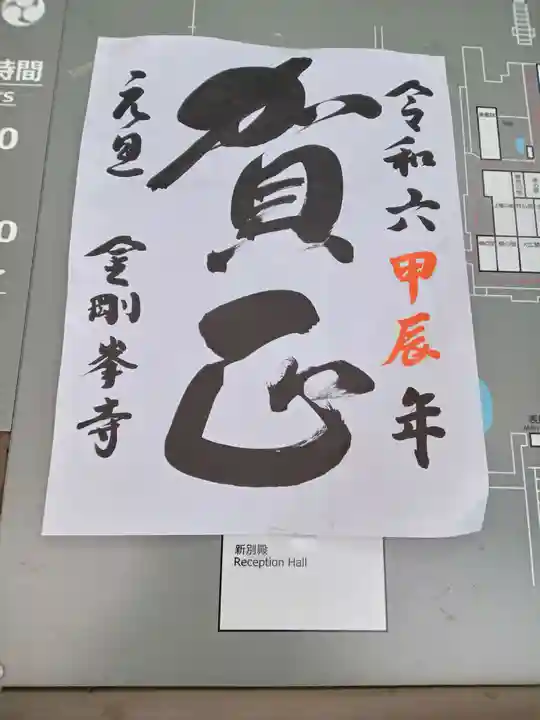 令和六甲辰年
賀正
元旦
金剛峯寺
時間
新別殿
Reception Hall